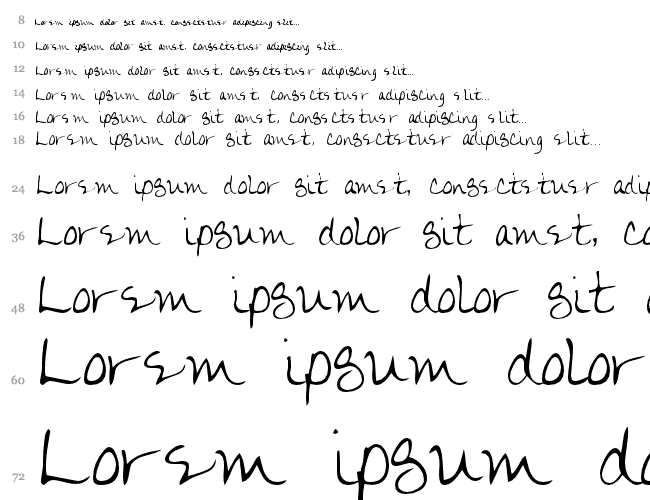 8 Lorem ipsum dolor sit amet, consectetuer adipiscing elit...
10 Lorem ipsum dolor sit amet, consectetuer adipiscing elit...
12 Lorem ipsum dolor sit amet, consectetuer adipiscing elit...
14 Lorem ipsum dolor sit amet, consectetuer adipiscing elit...
16 Lorem ipsum dolor sit amet, consectetuer adipiscing elit...
18 Lorem ipsum dolor sit amet, consectetuer adipiscing elit...
24 Lorem ipsum dolor sit amet, consectetuer adip
36 Lorem ipsum dolor sit amet, co
48 Lorem ipsum dolor sit
60 Lorem ipsum dolor
72 Lorem ipsum do